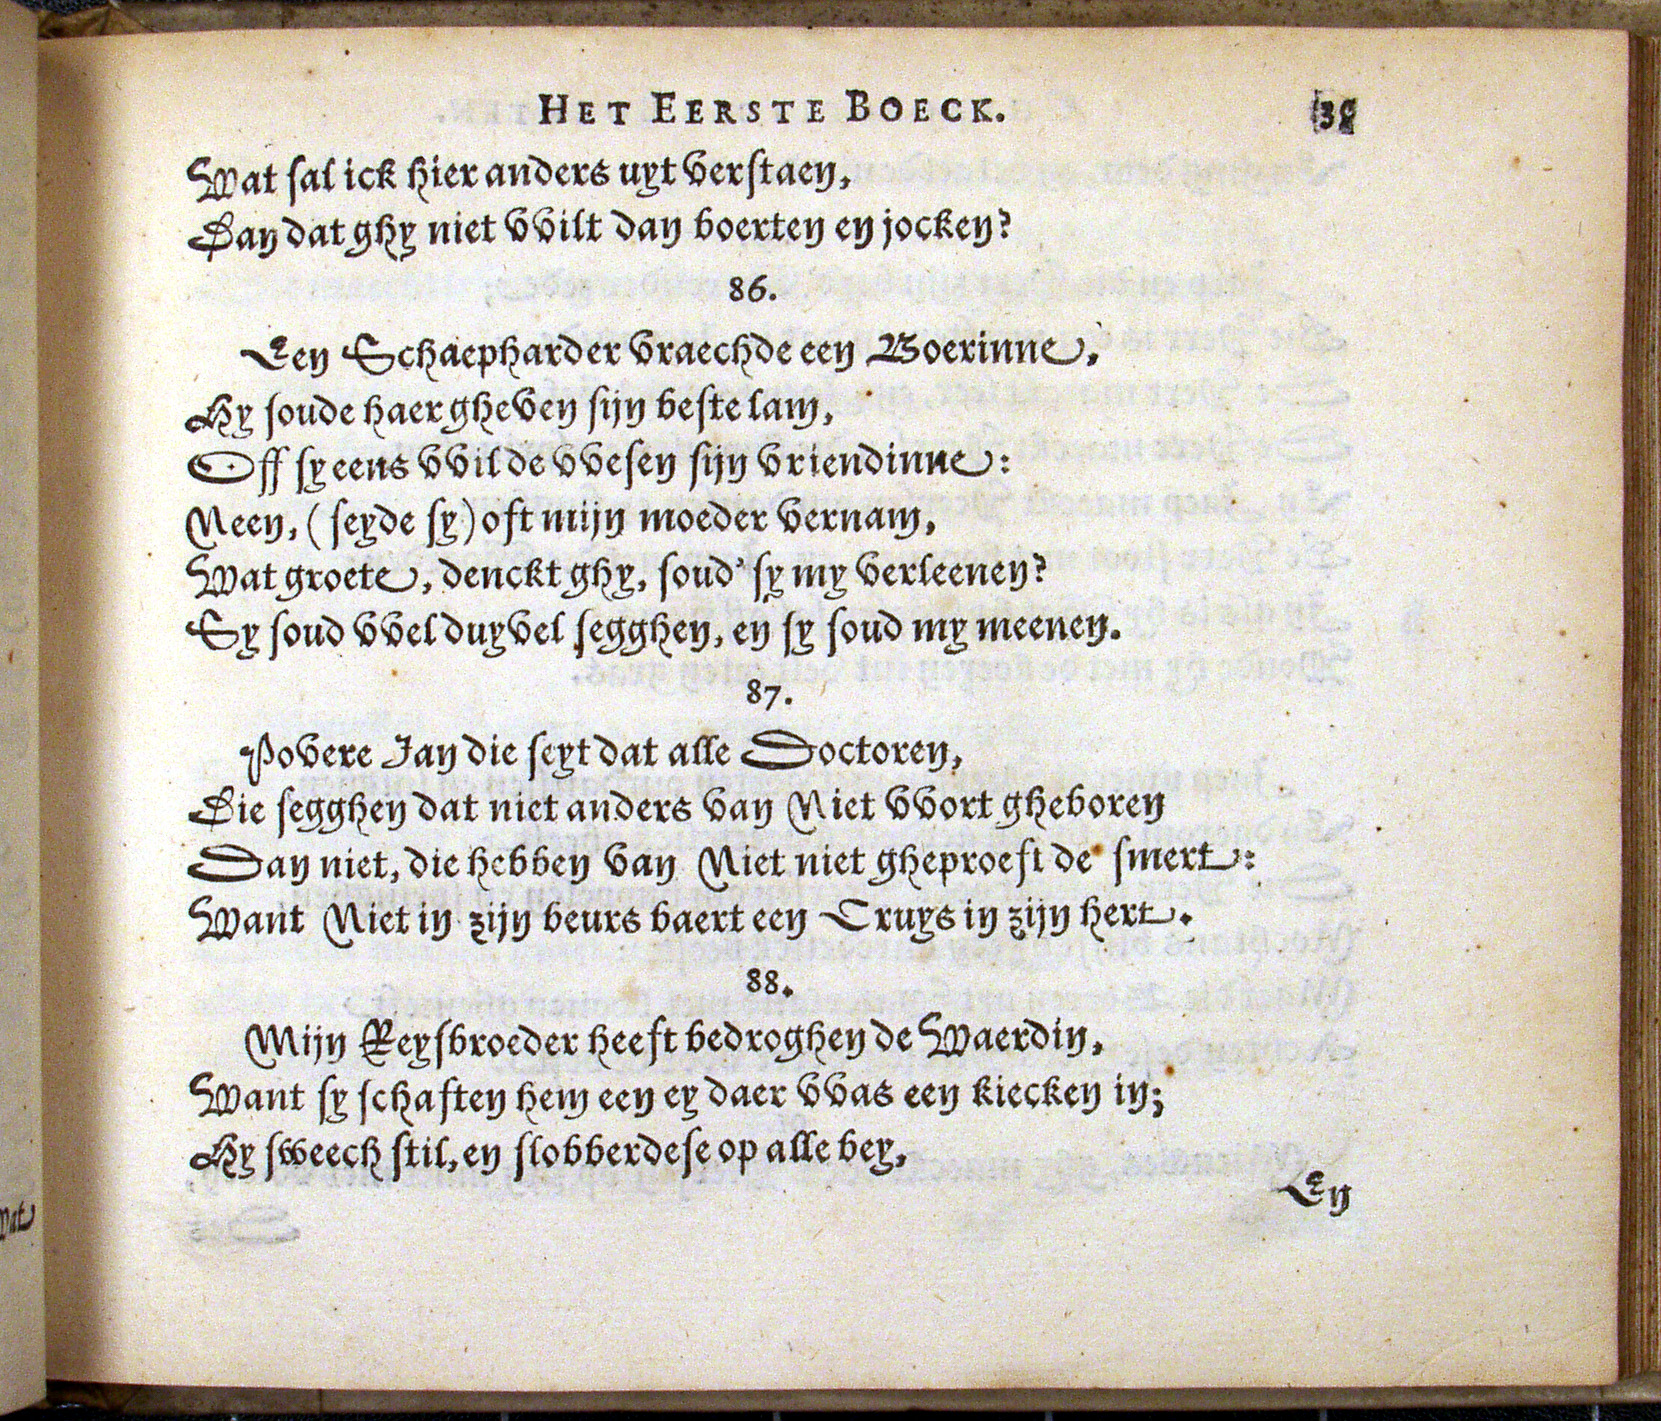 HET EERSTE BOECK.
Wat sal ick hier anders uyt verstaen,
Dan dat ghy niet vvilt dan boerten en jocken?
86.
Een Schaepharder vraechde een Boerinne,
Hy soude haer gheven sijn beste lam,
Off sy eens vvilde vvesen sijn vriendinne:
Neen, (seyde sy) oft mijn moeder vernam,
Wat groete, denckt ghy, soud' sy my verleenen?
Sy soud vvel duyvel segghen, en sy soud my meenen.
87.
Povere Jan die seyt dat alle Doctoren,
Die segghen dat niet anders van Niet vvort gheboren
Dan niet, die hebben van Niet niet gheproeft de smert:
Want Niet in zijn beurs baert een Cruys in zijn hert.
88.
Mijn Reysbroeder heeft bedroghen de Waerdin,
Want sy schaften hem een ey daer vvas een kiecken in;
Hy sweech stil, en slobberdese op alle bey,
En
Wat